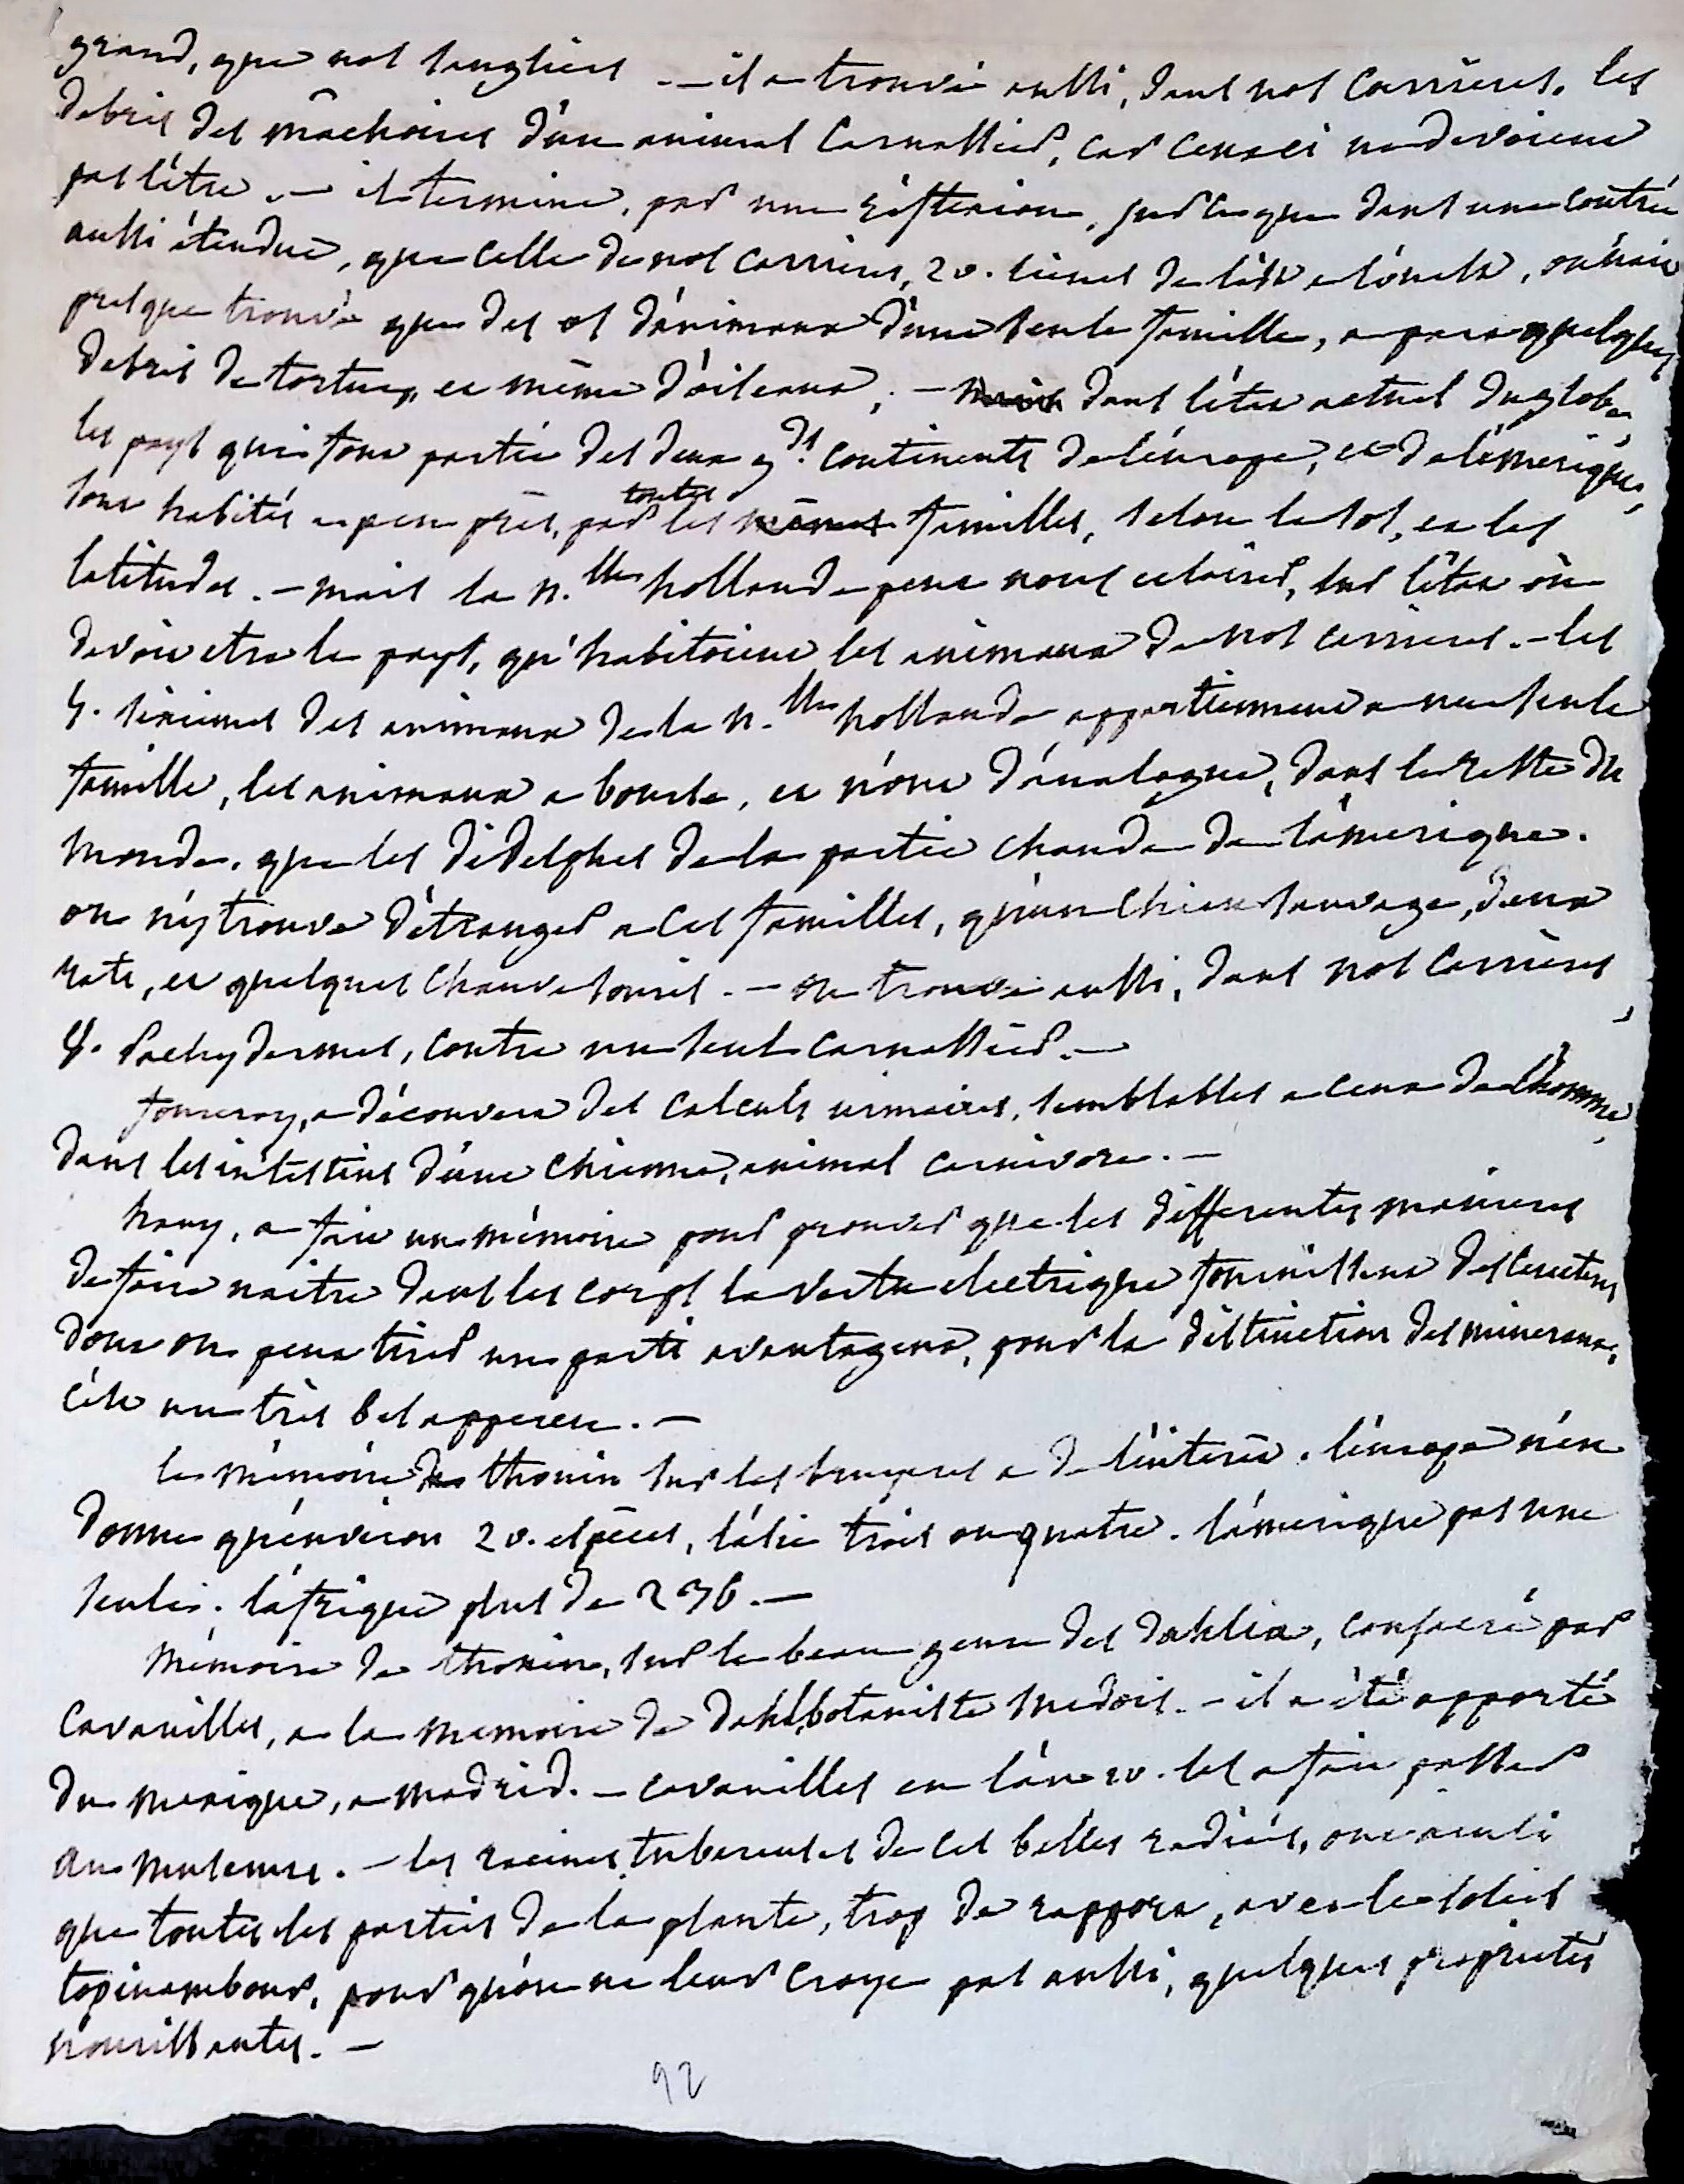 grand, que nos sangliers. — il a trouvé aussi, dans nos carrières, les
debris des mâchoires d'un animal carnassier, car ceux ci ne devoient
pas l'être. — il termine, par une réflexion, sur ce que dans une contrée
aussi étendue, que celle de nos carrieres, 20. lieues de l'est a l'ouest, on n'ait
presque trouvé que des os d'animaux d'une seule famille, a part quelques
debris de tortues, et même d'oiseaux; — mais dans l'état actuel du globe,
les pays qui font partie des deux gds. continents de l'europe, et de l'amerique,
sont habités a peu près, par toutes les mêmes familles, selon le sol, et les
latitudes. — mais la n.lle hollande peut nous eclairer, sur l'état où
devoit etre le pays, qu'habitoient les animaux de nos carrieres. — les
5. sixiemes des animaux de la n.lle hollande appartiennent a une seule
famille, les animaux a bourse, et n'ont d'analogue, dans le reste du
monde, que les didelphes de la partie chaude de l'amerique.
on n'y trouve d'étranger a ces familles, qu'un chien sauvage, deux
rats, et quelques chauve souris. — on trouve aussi, dans nos carrières,
pachydermes, contre un seul carnassier. —
fourcroy, a découvert des calculs urinaires, semblables a ceux de l'homme,
dans les intestins d'une chienne, animal carnivore. —
hauy, a fait un mémoire pour prouver que les differentes manieres
de faire naitre dans les corps la vertu electrique fournissent des caracteres
dont on peut tirer un parti avantageux, pour la distinction des mineraux,
c'est un très bel apperçu. —
le mémoire de thouin sur les bruyeres a de l'intérêt. l'europe n'en
donne qu'environ 20. especes, l'asie trois ou quatre. l'amerique pas une
seule. l'afrique plus de 236. —
mémoire de thouin, sur le beau genre des dahlia, consacré par
cavanilles, a la memoire de dahl, botaniste suedois. — il a été apporté
du mexique, a madrid. — cavanilles en l'an 10. les a fait passer
au museum. — les racines tubereuses de ces belles radiées, ont ainsi
que toutes les parties de la plante, trop de rapport, avec le soleil
topinambour, pour qu'on ne leur croye pas aussi, quelques proprietés
nourissantes. —
92